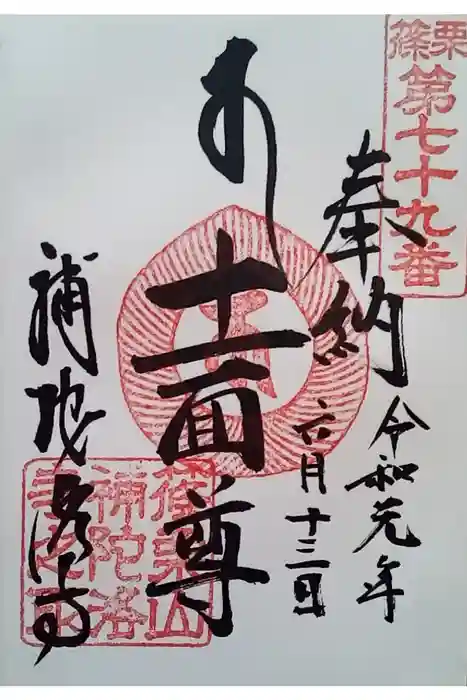 篠栗
第七十九番
奉納
令和元年
六月十三日
十一面尊
補陀洛寺
篠栗山
補陀洛
寺之印